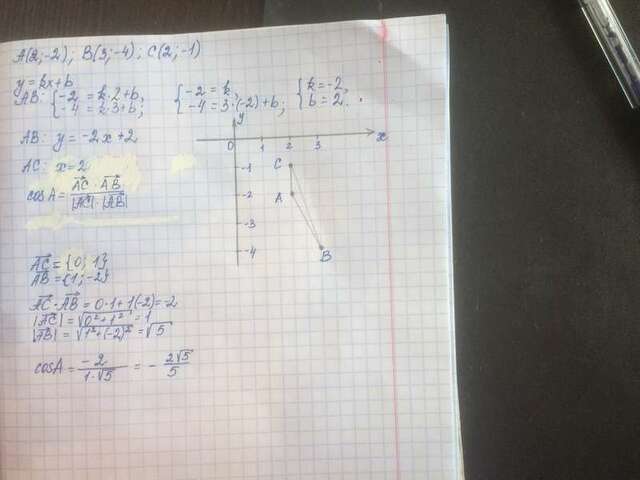 A(2;-2); B(3;-4); C(2;-1)
y=kx+b
AB: {-2 = k·2+b, {-2 = k, {k=-2,
-4 = k·3+b; -4 = 3·(-2)+b; b=2.
AB: y=-2x+2
AC: x=2
cosA = AC·AB / |AC|·|AB|
y
0 1 2 3 x
-1 C
-2 A
-3
-4 B
AC = {0; 1}
AB = {1; -2}
AC·AB = 0·1+1(-2)=-2
|AC| = √0²+1² = 1
|AB| = √1²+(-2)² = √5
cosA = -2 / 1·√5 = - 2√5 / 5